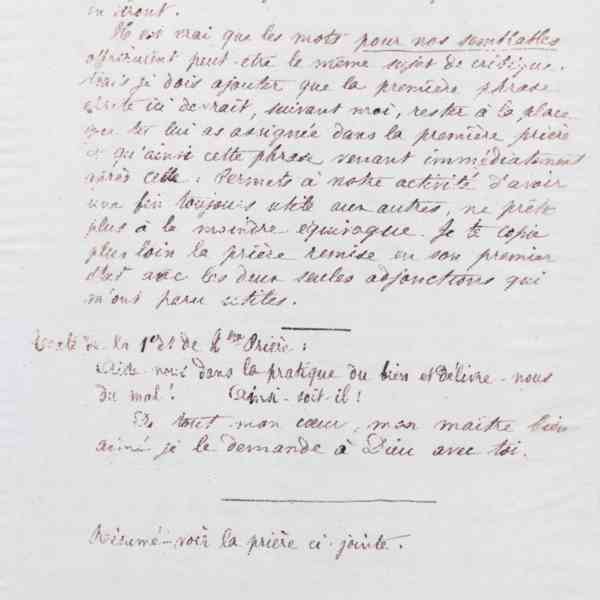 Il est vrai que les mots pour nos semblables
offriraient peut-être le même sujet de critique.
Mais je dois ajouter que la première phrase
écrite ici devrait, suivant moi, rester à la place
que tu lui as assignée dans la première prière
et qu'ainsi cette phrase venant immédiatement
après celle : Permets à notre activité d'avoir
une fin toujours utile aux autres, ne prête
plus à la moindre équivoque. Je te copie
plus loin la prière remise en son premier
état avec les deux seules adjonctions qui
m'ont paru utiles.
de la de Prière :
Aide nous dans la pratique du bien et délivre-nous
du mal ! Ainsi-soit-il !
De tout mon cœur, mon maître bien
aimé je le demande à Dieu avec toi.
Résumé - voir la prière ci-jointe.